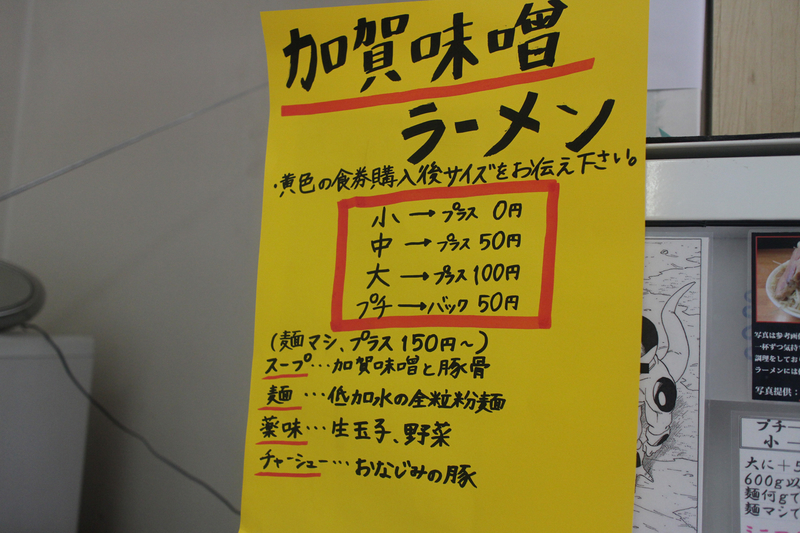 加賀味噌
ラーメン
・黄色の食券購入後サイズをお伝え下さい。
小→プラス 0円
中→プラス 50円
大→プラス 100円
プチ→バック 50円
(麺マシ、プラス 150円〜)
スープ…加賀味噌と豚骨
麺…低加水の全粒粉麺
薬味…生玉子、野菜
チャーシュー…おなじみの豚
写真は参考画
一杯ずつ気持
調理をしてお
ラーメンには
写真提供：
プチ
小
大に＋5
600g以
麺何gで
麺マシで